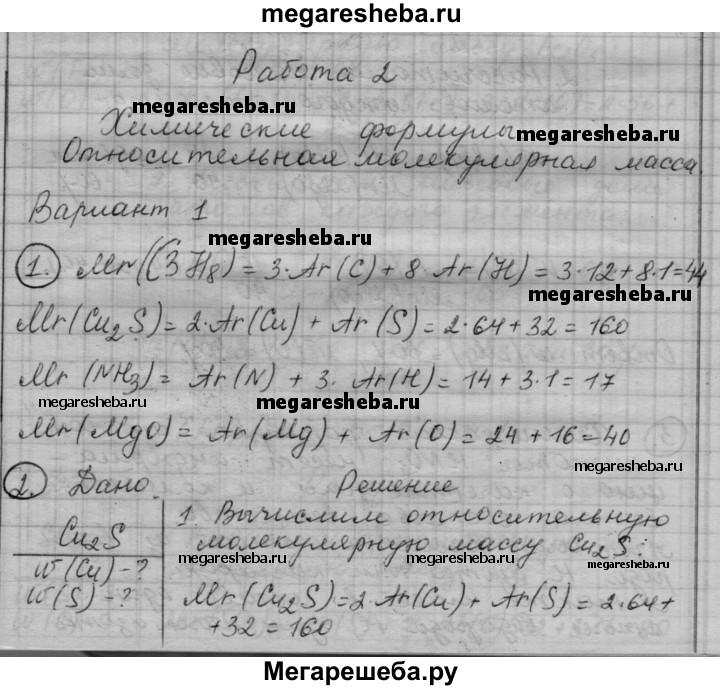 megaresheba.ru
Работа 2
megaresheba.ru
Химические формулы megaresheba.ru
Относительная молекулярная масса.
Вариант 1
megaresheba.ru
1. Mr(C3H8) = 3·Ar(C) + 8·Ar(H) = 3·12+8·1=44
megaresheba.ru
Mr(Cu2S) = 2·Ar(Cu) + Ar(S) = 2·64+32 = 160
Mr(NH3) = Ar(N) + 3·Ar(H) = 14+3·1 = 17
megaresheba.ru megaresheba.ru
Mr(MgO) = Ar(Mg) + Ar(O) = 24+16=40
megaresheba.ru
2. Дано Решение
1. Вычислим относительную
Cu2S молекулярную массу Cu2S:
megaresheba.ru megaresheba.ru megaresheba.ru
w(Cu)-?
w(S)-? Mr(Cu2S)=2·Ar(Cu)+Ar(S)=2·64+
+32=160
Мегарешеба.ру